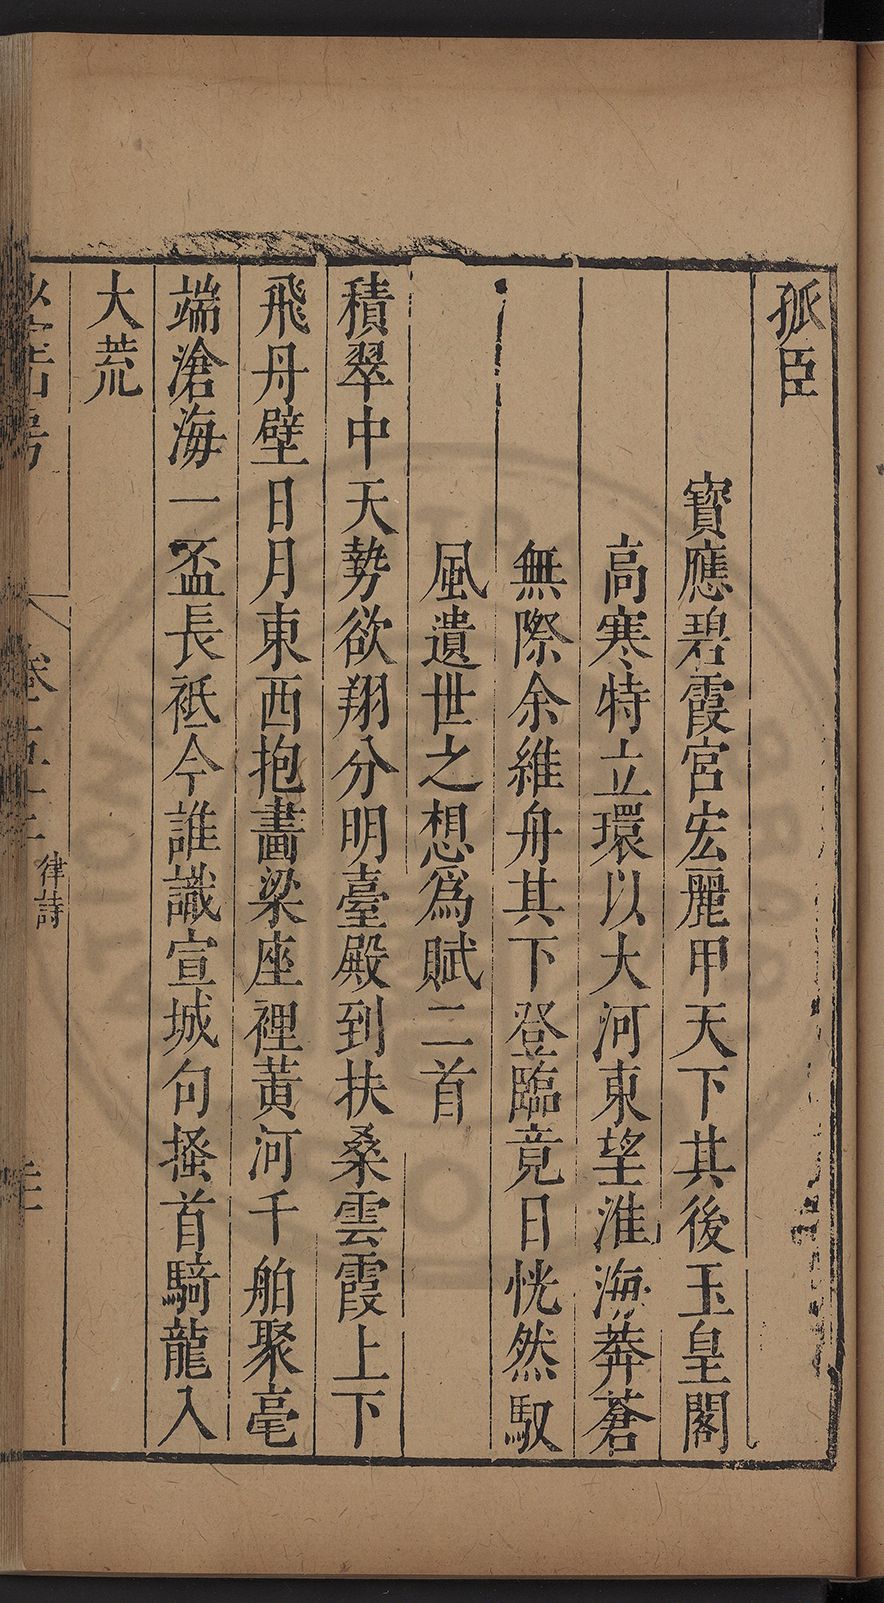 孤臣
寶應碧霞宮宏麗甲天下其後玉皇閣
高寒特立環以大河東望淮海莽蒼
無際余維舟其下登臨竟日恍然馭
風遺世之想爲賦二首
積翠中天勢欲翔分明臺殿到扶桑雲霞上下
飛丹壁日月東西抱畫梁座裡黃河千舶聚毫
端滄海一盃長祗今誰識宣城句搔首騎龍入
大荒
卷五十
律詩